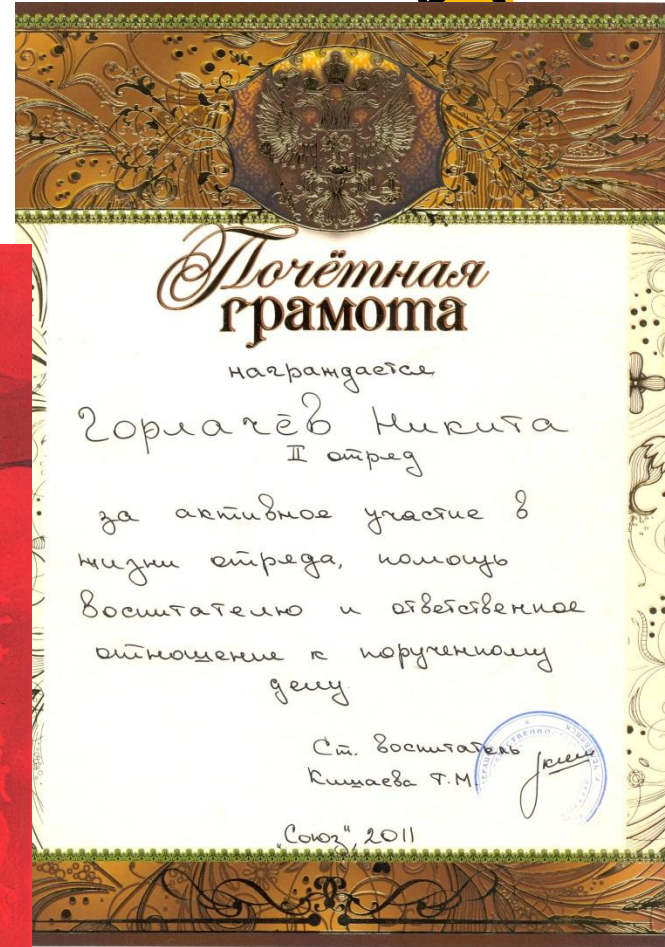 Почётная
грамота
награждается
Горлачёв Никита
II отряд
за активное участие в
жизни отряда, помощь
воспитателю и ответственное
отношение к порученному
делу.
Ст. воспитатель
Кишаева Т.М.
"Союз", 2011